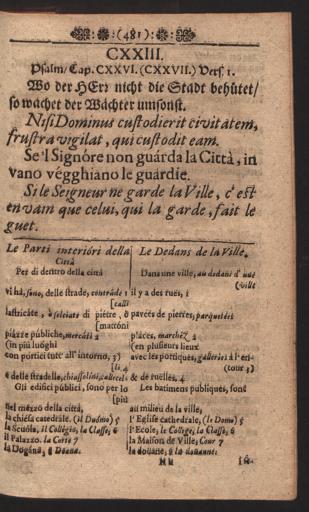 (481)
CXXIII.
Psalm/ Cap. CXXVI. (CXXVII.) Vers. 1.
Wo der HErr nicht die Stadt behütet/
so wachet der Wächter umsonst.
Nisi Dominus custodierit civitatem,
frustra vigilat, qui custodit eam.
Se'l Signóre non guárda la Città, in
vano végghiano le guardie.
Si le Seigneur ne garde la Ville, c'est
en vam que celui, qui la garde, fait le
guet.
Le Parti interióri della
Città
Per di dentro della città
vi hà, sono, delle strade, contráde 1
[calli
lastricáte, ò seleiate di piétre, ò
[mattóni
piázze públiche, mercáti 2
(in più luoghi
con pórtici tutt' all' intorno, 3)
[li. 4
e delle stradelle, chiassolini, callecel-
Gli edifici públici, sono per lo
[più
nel mézzo della città,
la chiésa catedrale. (il Duómo) 5
la Scuóla, il Collégio, la Classe, 6
il Palazzo. la Corte 7
la Dogána, ò Doana.
Le Dedans de la Ville.
Dans une ville, au dedans d' une
(ville
il y a des rues, 1
pavées de pierres, parquetées
pláces, marchéz 2
(en plusieurs lieux
avec les portiques, galleries à l'en-
(tour 3)
& de ruëlles, 4
Les batimens publiques, sont
au milieu de la ville,
l'Eglise cathedrale, (le Dome) 5
l'Ecole, le College, la Classe, 6
la Maison de Ville, Cour 7
la doüane, ò la douanne: